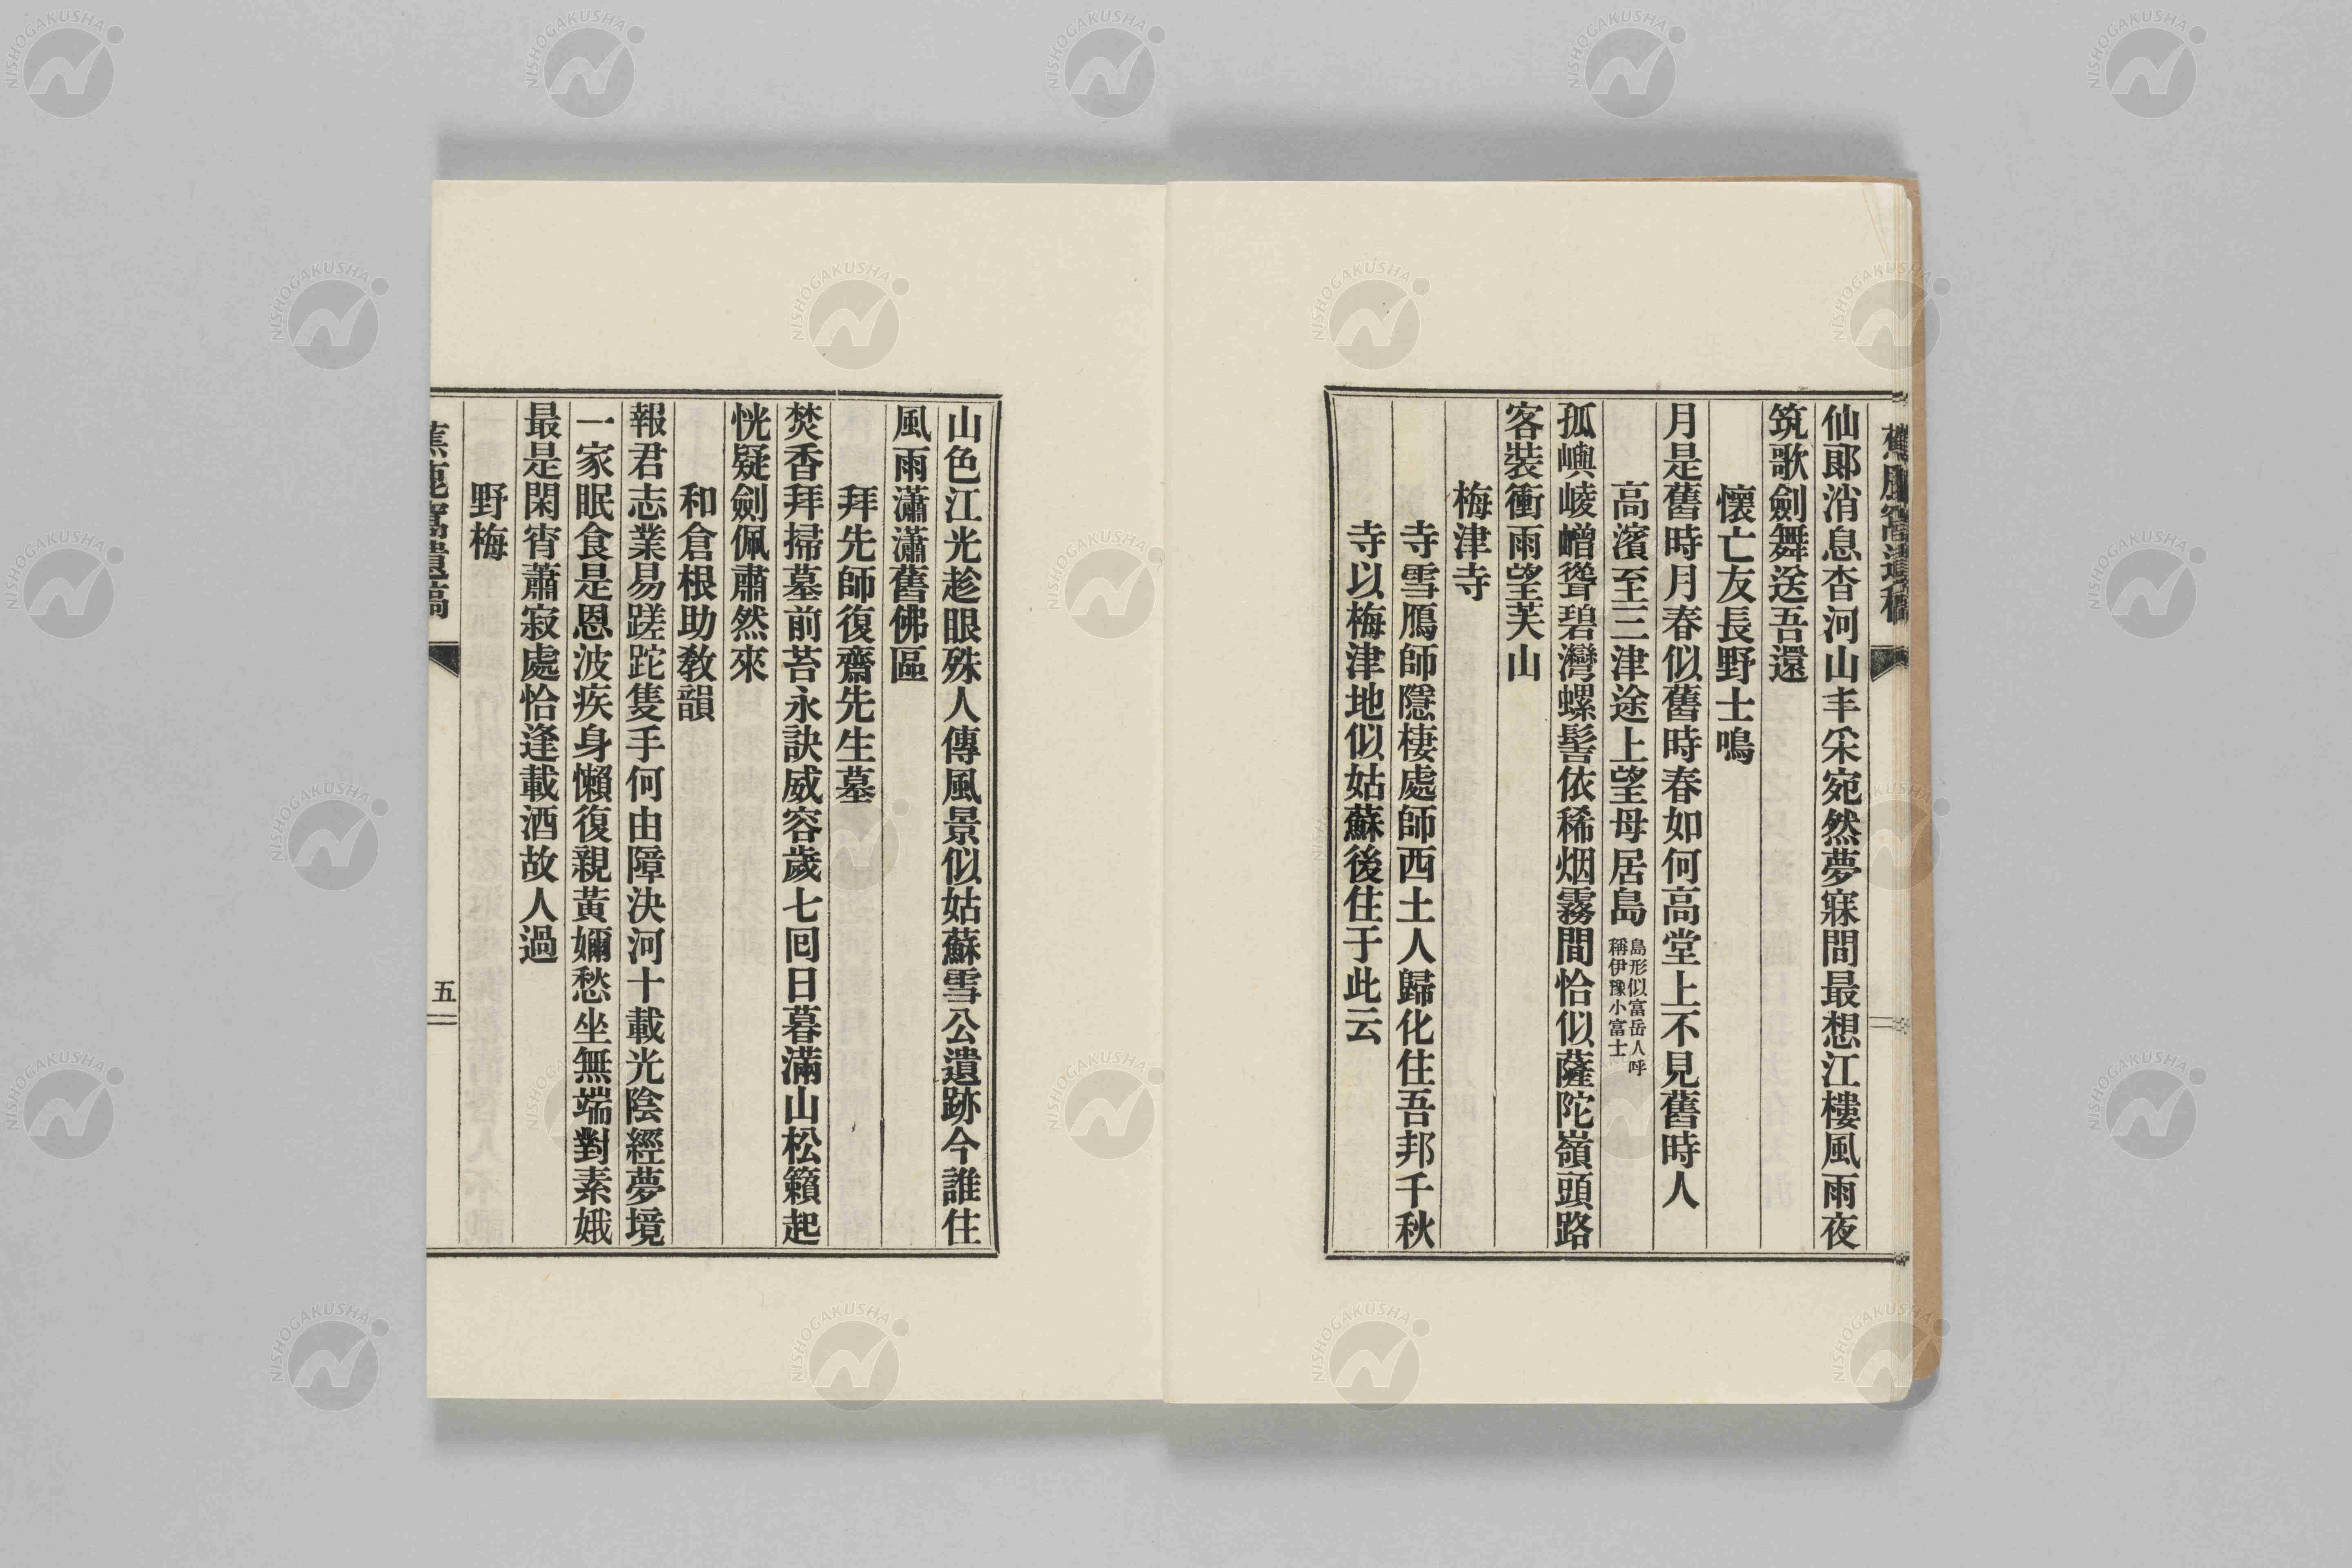 仙郞消息杳河山丰采宛然夢寐間最想江樓風雨夜
筑歌劍舞送吾還
懷亡友長野士鳴
月是舊時月春似舊時春如何高堂上不見舊時人
高濱至三津途上望母居島 島形似富岳人呼稱伊豫小富士
孤嶼崚嶒聳碧灣螺髻依稀烟霧間恰似薩陀嶺頭路
客裝衝雨望芙山
梅津寺
寺雪鴈師隱棲處師西土人歸化住吾邦千秋
寺以梅津地似姑蘇後住于此云
山色江光趁眼殊人傳風景似姑蘇雪公遺跡今誰住
風雨瀟瀟舊佛區
拜先師復齋先生墓
焚香拜掃墓前苔永訣威容歲七囘日暮滿山松籟起
恍疑劍佩肅然來
和倉根助敎韻
報君志業易蹉跎隻手何由障決河十載光陰經夢境
一家眠食是恩波疾身懶復親黃嬭愁坐無端對素娥
最是閑宵蕭寂處恰逢載酒故人過
野梅
蕉鹿窩遺稿
五
NISHOGAKUSHA